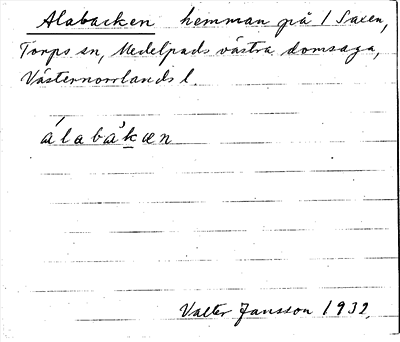 Alabacken hemman på / Saxen,
Torps sn, Medelpads västra domsaga,
Västernorrlands l.
álabàkæn
Valter Jansson 1932.